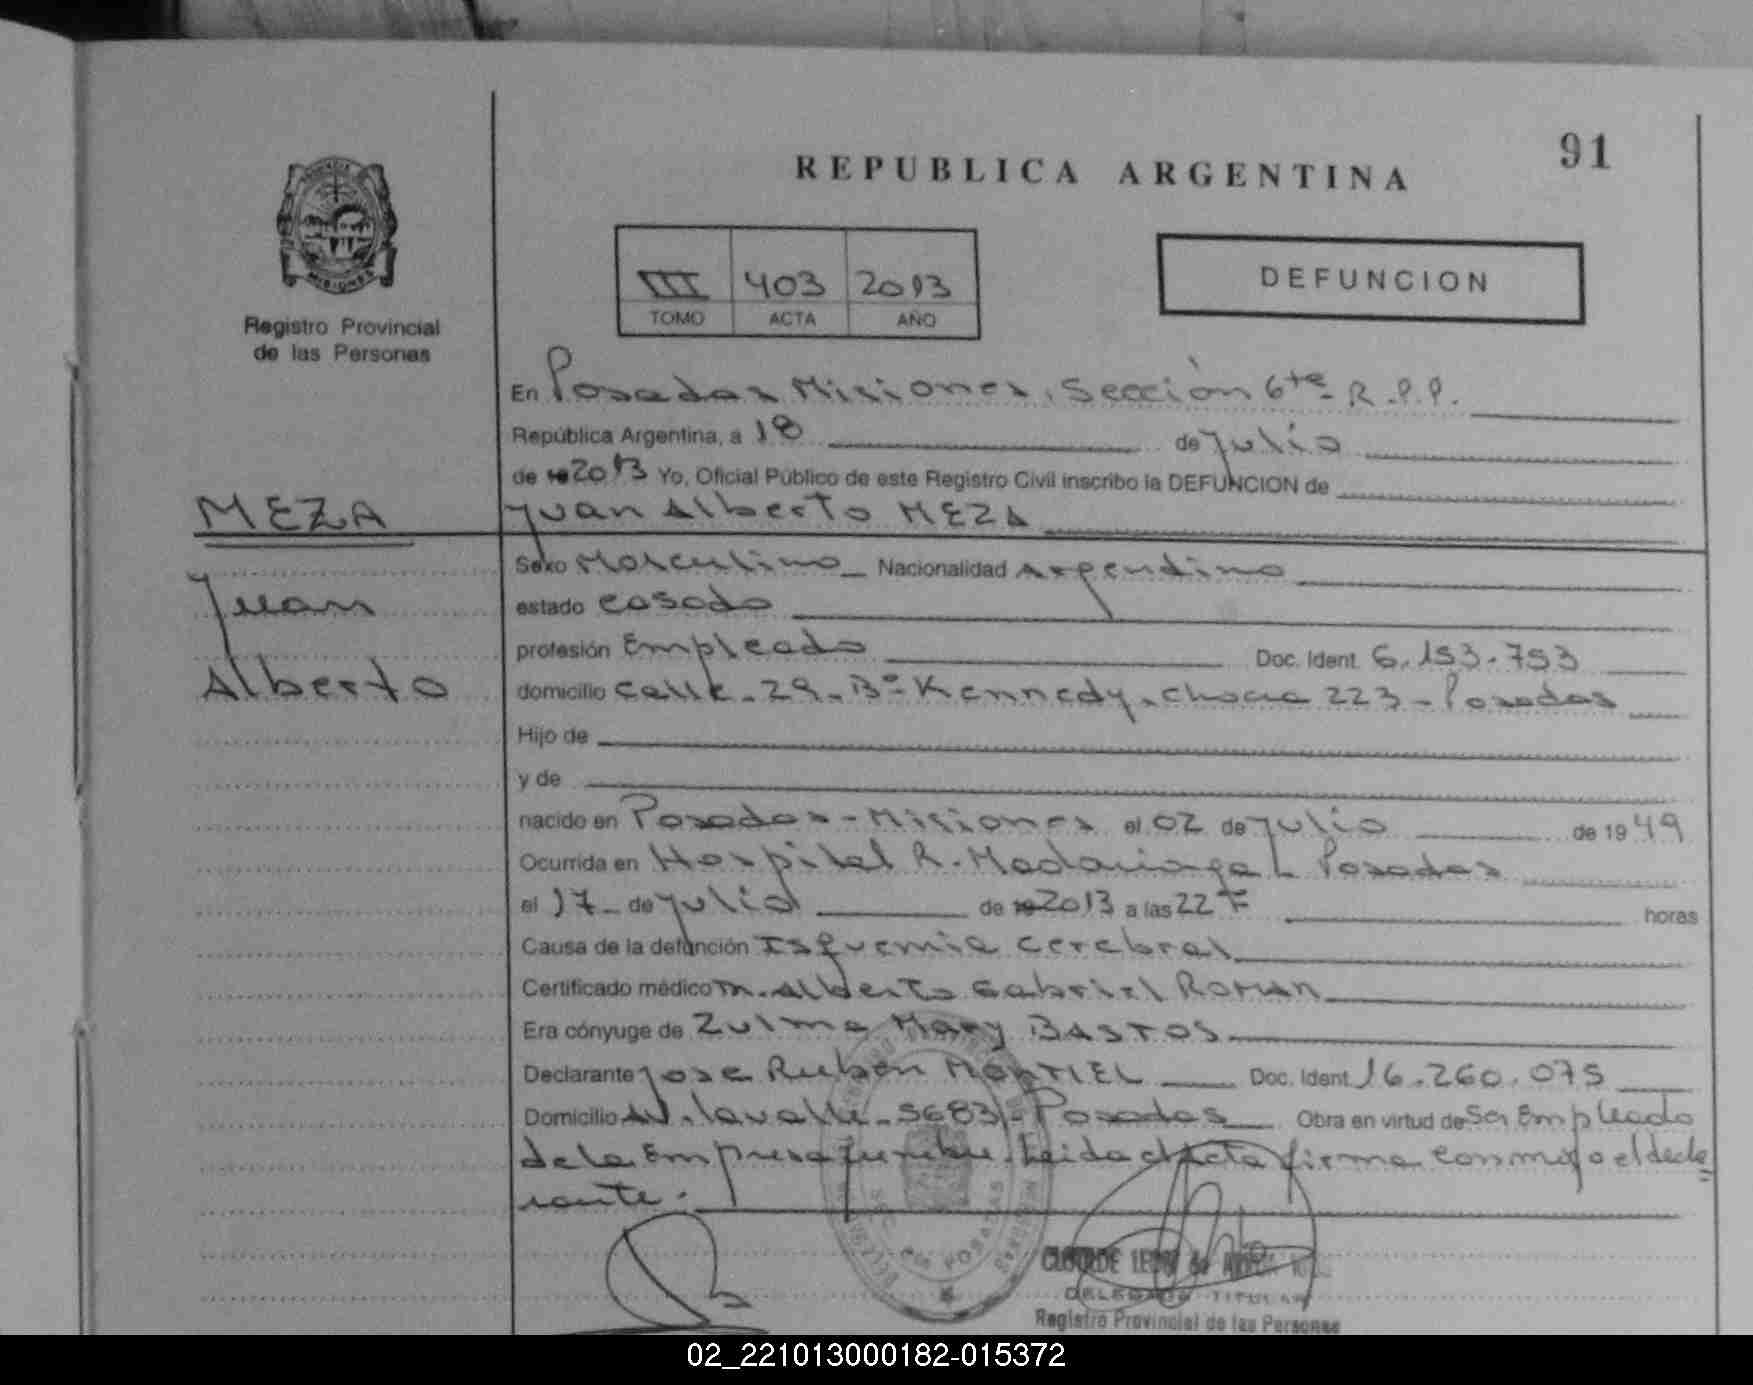 91
REPUBLICA ARGENTINA
III 403 2013
TOMO ACTA AÑO
DEFUNCION
MISIONES
Registro Provincial
de las Personas
En Posadas Misiones, Sección 6ta R.P.P.
República Argentina, a 18 de Julio
de 19 2013 Yo, Oficial Público de este Registro Civil inscribo la DEFUNCION de
MEZA
Juan Alberto MEZA
Juan
Alberto
Sexo Masculino Nacionalidad Argentino
estado casado
profesión Empleado Doc. Ident. 6.153.753
domicilio calle 29 - Bº Kennedy, chacra 223 - Posadas
Hijo de
y de
nacido en Posadas - Misiones el 02 de Julio de 1949
Ocurrida en Hospital R. Madariaga - Posadas
el 17 de Julio de 19 2013 a las 22 horas
Causa de la defunción Isquemia cerebral
Certificado médico m. Alberto Gabriel Roman
Era cónyuge de Zulma Mary BASTOS
Declarante Jose Ruben MONTIEL Doc. Ident. 16.260.075
Domicilio Av. lavalle - 5683 - Posadas Obra en virtud de Ser Empleado
de la Empresa funebre. Leida el Acta firma conmigo el decla
rante.
SEC. 6ta POSADAS
CLOTILDE de
DELEGADO TITULAR
Registro Provincial de las Personas
02_221013000182-015372